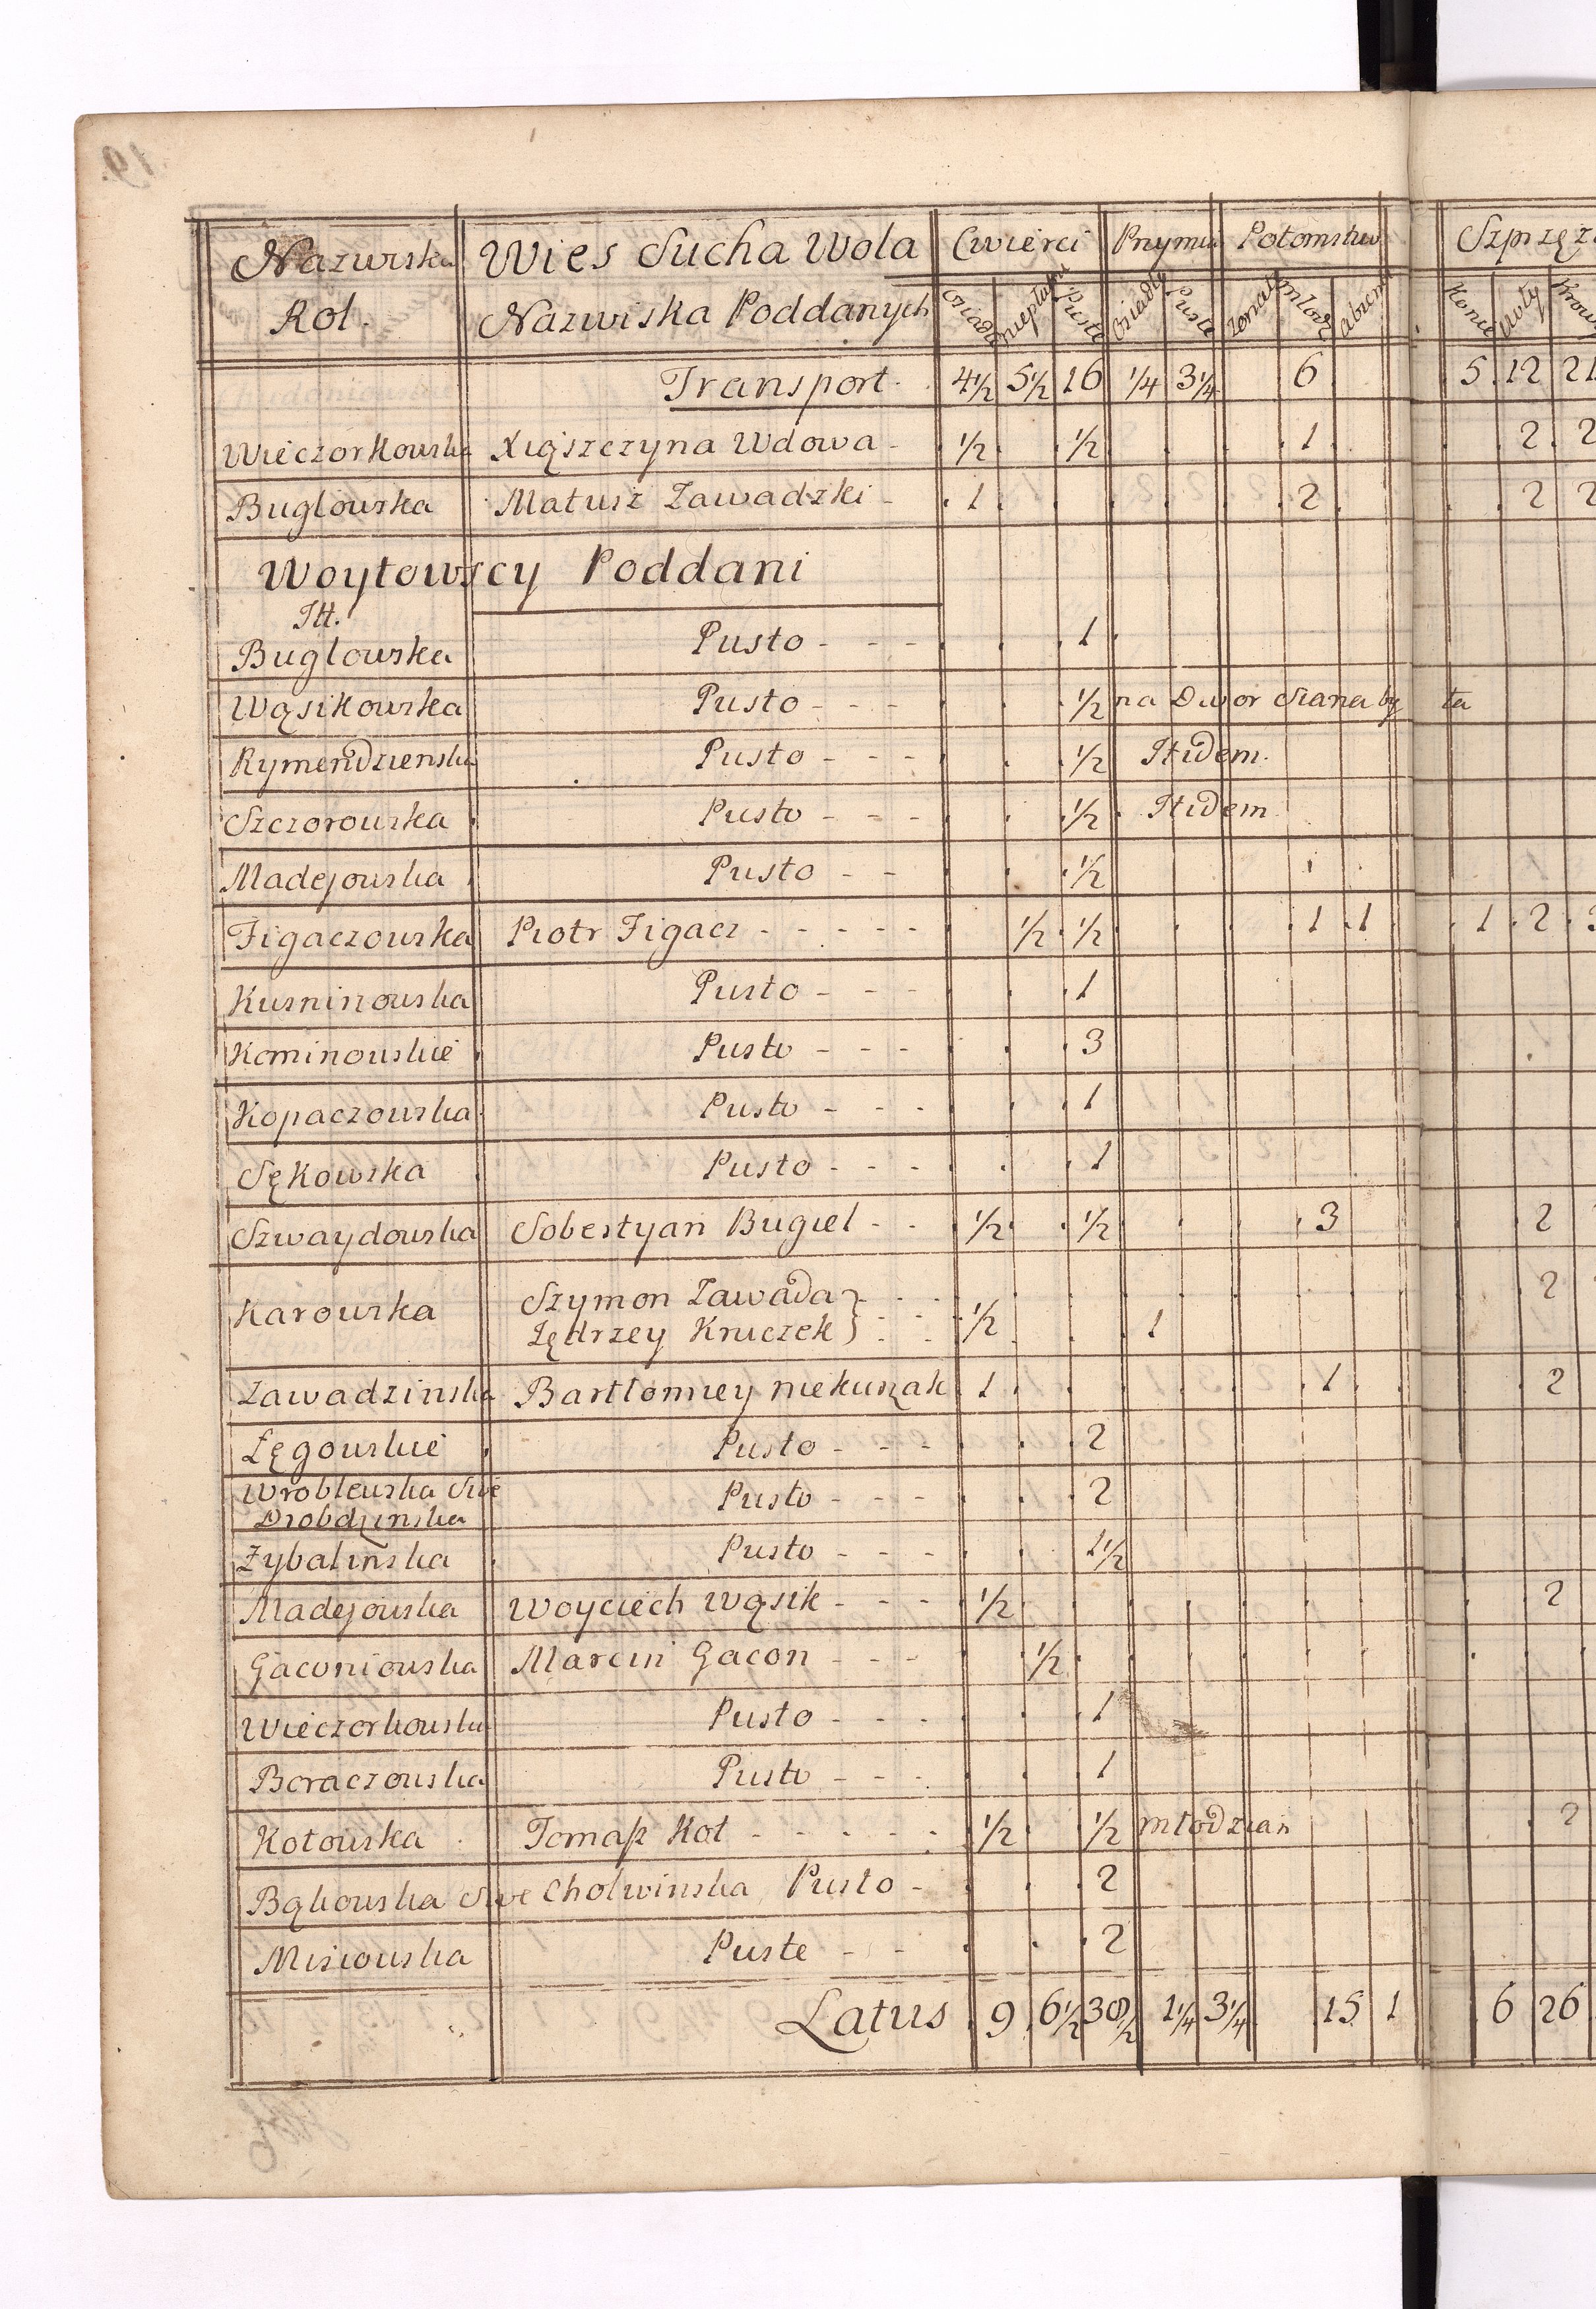 Nazwiska Wies Sucha Wola Cwierci Przymu Potomstwo Szprzęz
Rol. Nazwiska Poddanych Osiadłe niepłatne Puste Osiadły Puste Zonate młodz Konie Woły Krow
Transport. 4½ 5½ 16 ¼ 3¼ 6 5 12 21
Wieczorkowska Xięszczyna Wdowa - ½ ½ 1 2 2
Buglowska Matusz Zawadzki - 1 2 2 2
Woytowscy Poddani
Itt.
Buglowska Pusto - - - 1
Wąsikowska Pusto - - - ½ na Dwor Siana by ta
Rymendzienska Pusto - - - ½ Itidem.
Szczorowska Pusto - - - ½ Itidem
Madejowska Pusto - - ½
Figaczowska Piotr Figacz - - - - - ½ ½ 1 1 1 2
Kusninowska Pusto - - - 1
Kominowskie Pusto - - - 3
Kopaczowska Pusto - - - 1
Sękowska Pusto - - - 1
Szwaydowska Sobestyan Bugiel - - ½ ½ 3 2
Karowska Szymon Zawada } - - 2
Jędrzey Kruczek } - - ½ 1
Zawadzinska Bartłomiey niekurzak 1 1 2
Łęgowskie Pusto - - - 2
Wroblewska Sive
Drobdzinska Pusto - - - 2
Zybalinska Pusto - - - 1½
Madejowska Woyciech Wąsik - - - ½ 2
Gaconiowska Marcin Gacon - - - ½
Wieczorkowska Pusto - - - 1
Boraczowska Pusto - - - 1
Kotowska Tomasz Kot - - - - - ½ ½ młodzian 2
Bąkowska Sive Cholwinska Pusto - 2
Misiowska Puste - - 2
Latus 9 6½ 38½ 1¼ 3¼ 15 1 6 26